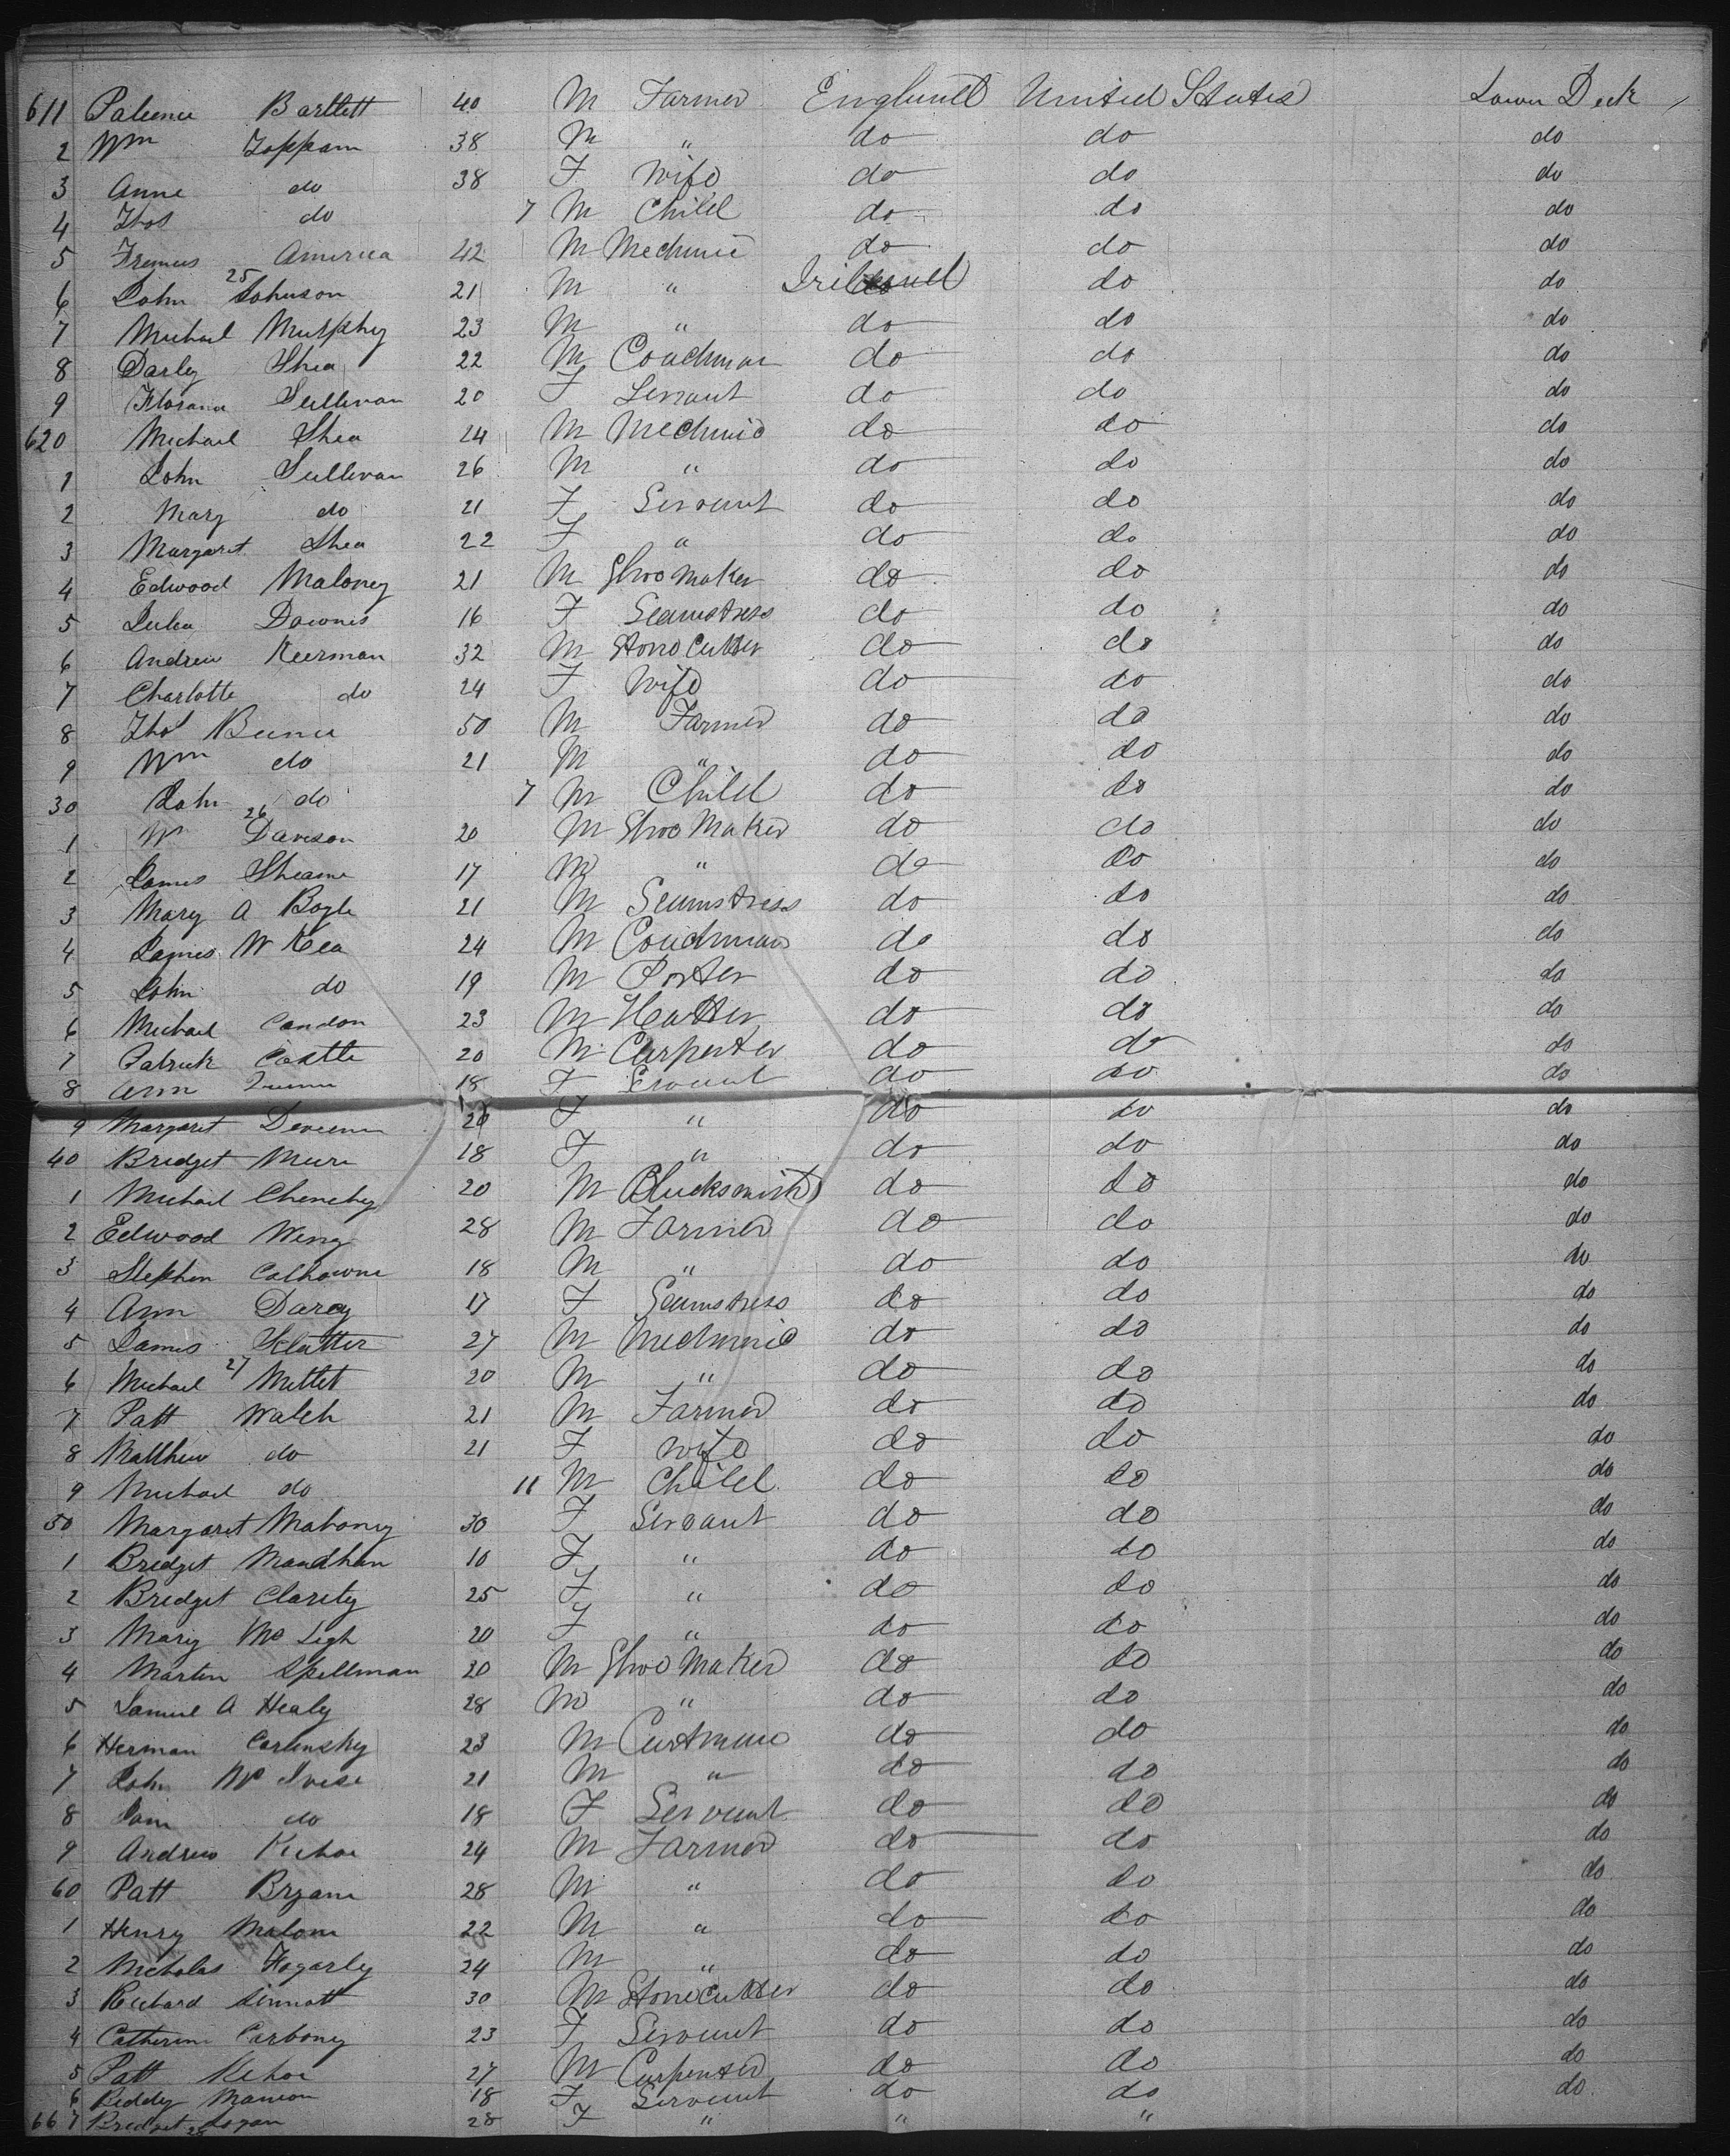 611 Patience Bartlett 40 M Farmer England United States Lower Deck
2 Wm Toppam 38 M " do do do
3 Anne do 38 F Wife do do do
4 Thos do 7 M Child do do do
5 Francis America 42 M Mechanic do do do
6 John 25 Johnson 21 M " Ireland do do
7 Michael Murphy 23 M " do do do
8 Darley Shea 22 M Coachman do do do
9 Florana Sullivan 20 F Servant do do do
620 Michael Shea 24 M Mechanic do do do
1 John Sullivan 26 M " do do do
2 Mary do 21 F Servant do do do
3 Margaret Shea 22 F " do do do
4 Edwood Maloney 21 M Shoo Maker do do do
5 Julia Downis 16 F Seamstress do do do
6 Andrew Keerman 32 M Stone Cutter do do do
7 Charlotte do 24 F Wife do do do
8 Thos 50 M Farmer do do do
9 Wm do 21 M " do do do
30 John do 7 M Child do do do
1 W 26 Davison 20 M Shoo Maker do do do
2 James Sheame 17 M " do do do
3 Mary A Bogle 21 M Seamstress do do do
4 James W Kea 24 M Coachman do do do
5 John do 19 M Porter do do do
6 Michael Condon 23 M Hatter do do do
7 Patrick Castle 20 M Carpenter do do do
8 Ann 18 F Servant do do do
9 Margaret 20 F " do do do
40 Bridget 18 F " do do do
1 Michael Chenchy 20 M Blacksmith do do do
2 Edwood Weny 28 M Farmer do do do
3 Stephen Calhowne 18 M " do do do
4 Ann Darcy 17 F Seamstress do do do
5 James Sklatter 27 M Mechanic do do do
6 Michael 27 Mittet 20 M " do do do
7 Patt Walch 21 M Farmer do do do
8 Matthew do 21 F Wife do do do
9 Michael do 11 M Child do do do
50 Margaret Mahoney 30 F Servant do do do
1 Bridget Mandhan 10 F " do do do
2 Bridget Clarity 25 F " do do do
3 Mary Mc Ligh 20 F " do do do
4 Martin Spellman 20 M Shoo Maker do do do
5 Samuel A Healy 28 M " do do do
6 Herman Carlinsky 23 M do do
7 John Mc 21 M " do do do
8 Jam do 18 F Servant do do do
9 Andrew Kehoe 24 M Farmer do do do
60 Patt Bryan 28 M " do do do
1 Henry Malone 22 M " do do do
2 Nicholas Fogarly 24 M " do do do
3 Richard Sinnott 30 M Stone Cutter do do do
4 Catherine Carbony 23 F Servant do do do
5 Patt Kehoe 27 M Carpenter do do do
6 Biddy Manion 18 F Servant do do do
667 Bridget Logan 28 28 F " " "